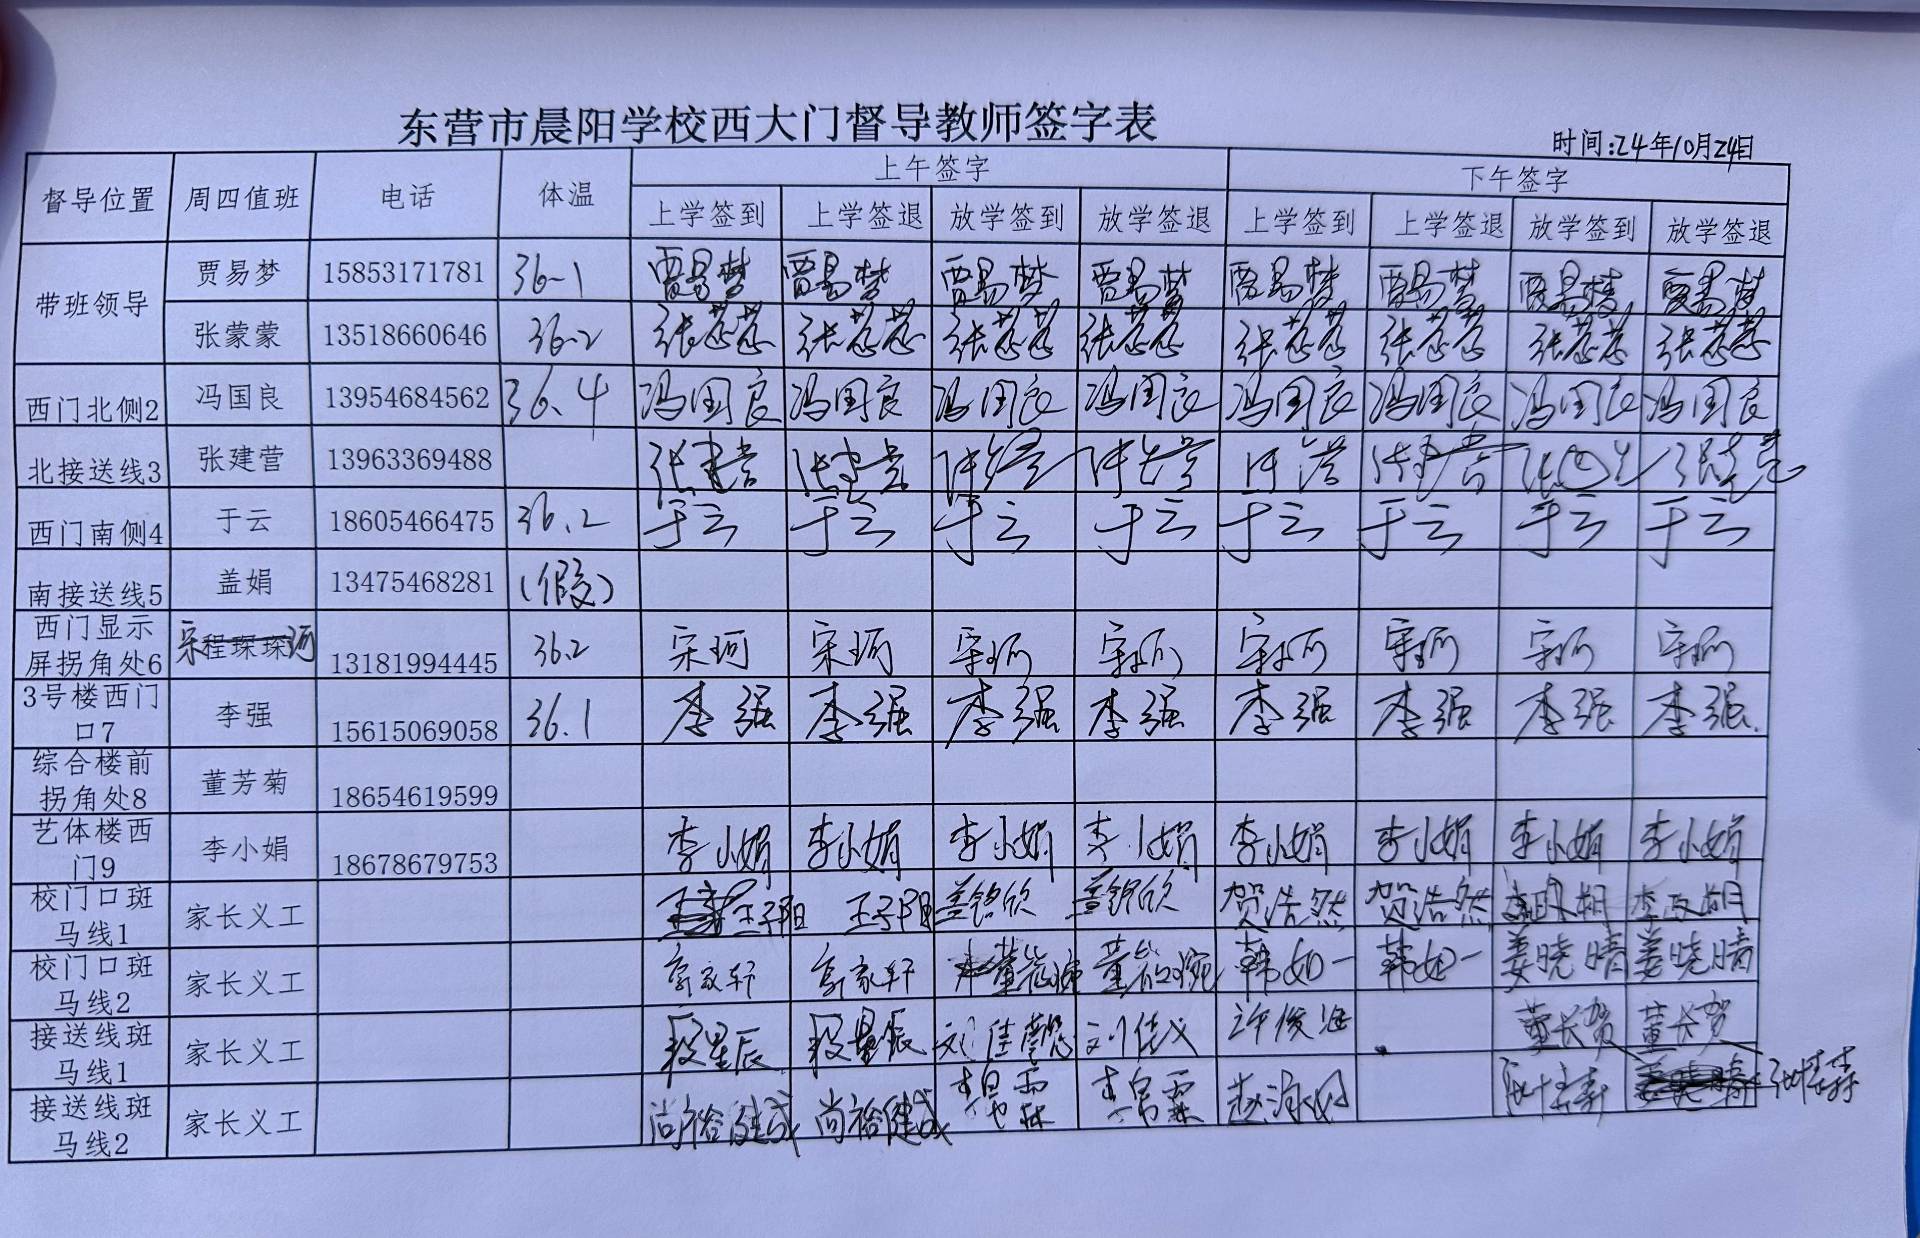 东营市晨阳学校西大门督导教师签字表
时间:24年10月24日
督导位置 周四值班 电话 体温 上午签字 下午签字
上学签到 上学签退 放学签到 放学签退 上学签到 上学签退 放学签到 放学签退
带班领导
贾易梦 15853171781 36.1 贾易梦 贾易梦 贾易梦 贾易梦 贾易梦 贾易梦 贾易梦 贾易梦
张蒙蒙 13518660646 36.2 张蒙蒙 张蒙蒙 张蒙蒙 张蒙蒙 张蒙蒙 张蒙蒙 张蒙蒙 张蒙蒙
西门北侧2 冯国良 13954684562 36.4 冯国良 冯国良 冯国良 冯国良 冯国良 冯国良 冯国良 冯国良
北接送线3 张建营 13963369488 张建营 张建营 张建营 张建营 张建营
西门南侧4 于云 18605466475 36.2 于云 于云 于云 于云 于云 于云 于云 于云
南接送线5 盖娟 13475468281 (假)
西门显示
屏拐角处6 宋程琛琛珂 13181994445 36.2 宋珂 宋珂 宋珂 宋珂 宋珂 宋珂 宋珂 宋珂
3号楼西门
口7 李强 15615069058 36.1 李强 李强 李强 李强 李强 李强 李强 李强
综合楼前
拐角处8 董芳菊 18654619599
艺体楼西
门9 李小娟 18678679753 李小娟 李小娟 李小娟 李小娟 李小娟 李小娟 李小娟 李小娟
校门口斑
马线1 家长义工 王子阳 王子阳 盖铭欣 盖铭欣 贺浩然 贺浩然
校门口斑
马线2 家长义工 韩如一 韩如一 姜晓晴 姜晓晴
接送线斑
马线1 家长义工 段星辰 段星辰 刘佳 许俊海 董长贺 董长贺
接送线斑
马线2 家长义工 尚裕健成 尚裕健成